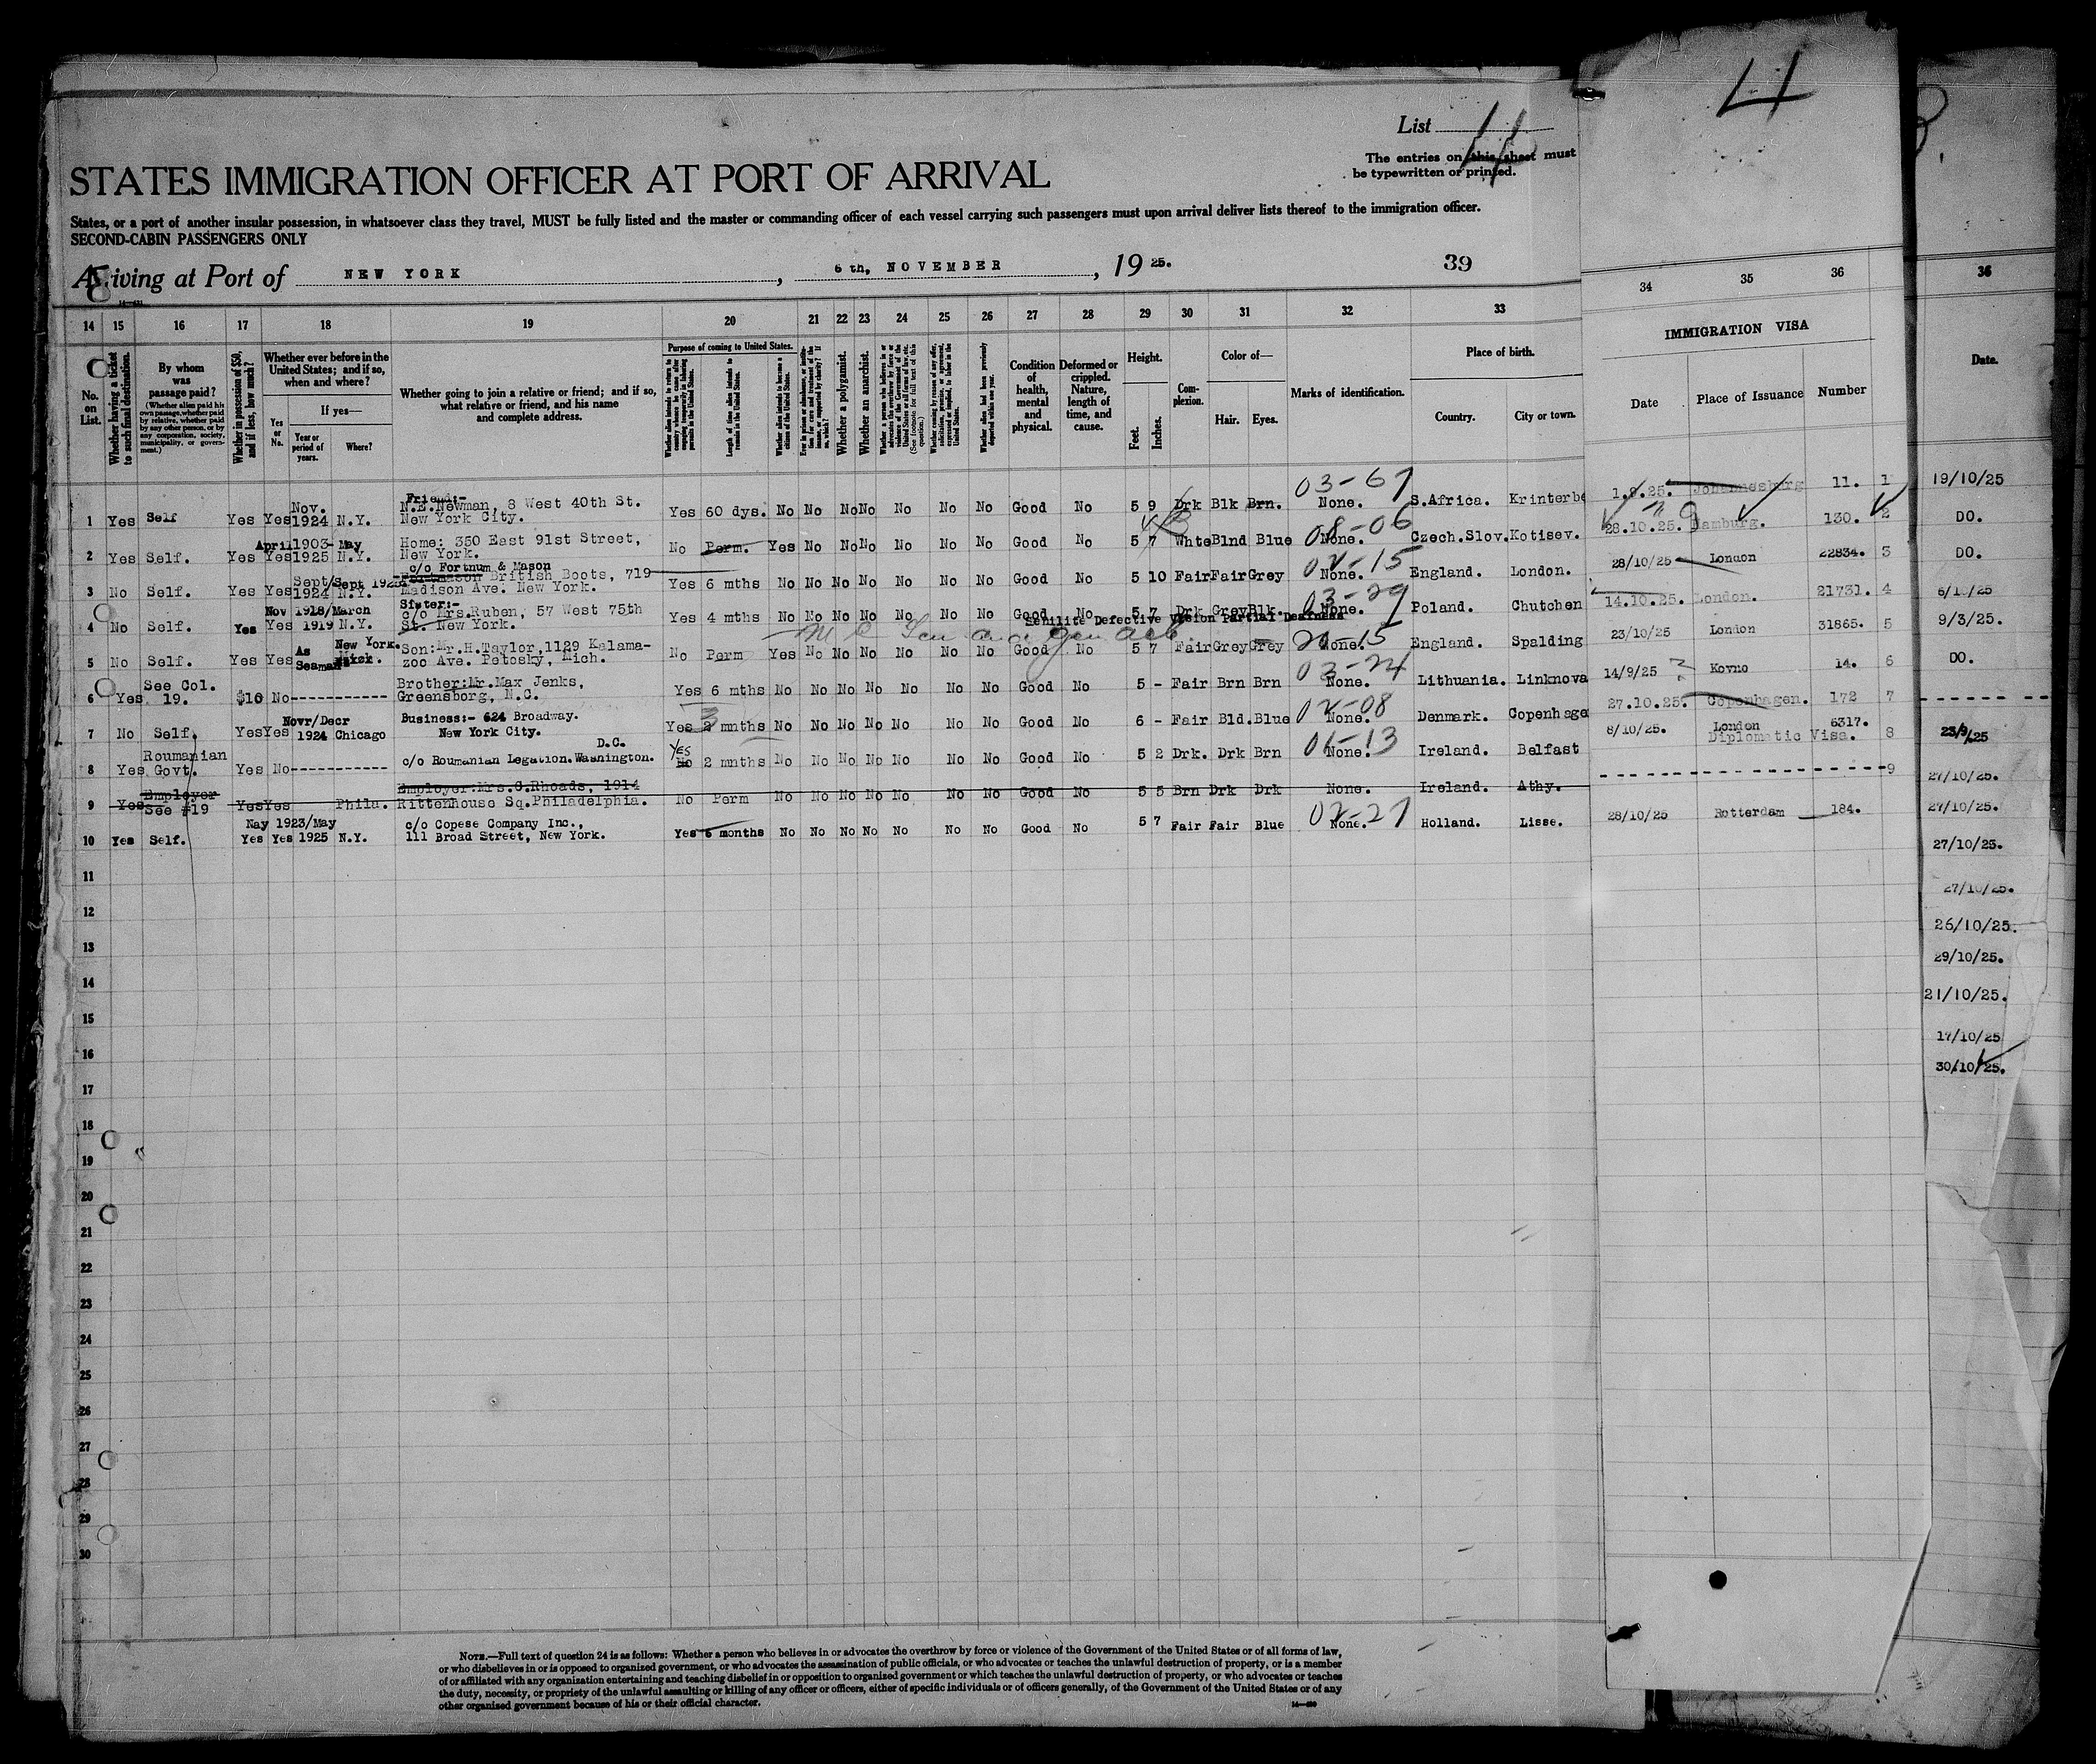 4
List 4
The entries on this sheet must
be typewritten or printed.
STATES IMMIGRATION OFFICER AT PORT OF ARRIVAL
States, or a port of another insular possession, in whatsoever class they travel, MUST be fully listed and the master or commanding officer of each vessel carrying such passengers must upon arrival deliver lists thereof to the immigration officer.
SECOND-CABIN PASSENGERS ONLY
Arriving at Port of NEW YORK, 6th, NOVEMBER, 19 25. 39
14 15 16 17 18 19 20 21 22 23 24 25 26 27 28 29 30 31 32 33 34 35 36 36
IMMIGRATION VISA
No. on List.
Whether having a ticket to such final destination.
By whom was passage paid?
(Whether alien paid his own passage, whether paid by relative, whether paid by any other person, or by any corporation, society, municipality, or government.)
Whether in possession of $50, and if less, how much?
Whether ever before in the United States; and if so, when and where?
Yes or No.
If yes—
Year or period of years.
Where?
Whether going to join a relative or friend; and if so, what relative or friend, and his name and complete address.
Purpose of coming to United States.
Length of time alien intends to remain in the United States.
Whether alien intends to become a citizen of the United States.
Whether a polygamist.
Whether an anarchist.
Condition of health, mental and physical.
Deformed or crippled. Nature, length of time, and cause.
Height.
Feet. Inches.
Complexion.
Color of—
Hair. Eyes.
Marks of identification.
Place of birth.
Country. City or town.
Date Place of Issuance Number
Date.
03-67
Nov. Friend:-
1 Yes Self Yes Yes 1924 N.Y. N.E.Newman, 8 West 40th St. New York City. Yes 60 dys. No No No No No No No Good No 5 9 Drk Blk Brn. None. S.Africa. Krinterbe 1.9.25. Johannesburg 11. 1 19/10/25
08-06
2 Yes Self. Yes Yes April 1903- May 1925 N.Y. Home: 350 East 91st Street, New York. No Perm. Yes No No No No No No Good No 5 7 Whte Blnd Blue None. Czech.Slov. Kotisev. 28.10.25. Hamburg. 130. 2 DO.
02-15
3 No Self. Yes Yes Sept/ Sept 1924 N.Y. c/o Fortnum & Mason British Boots, 719 Madison Ave. New York. Yes 6 mths No No No No No No No Good No 5 10 Fair Fair Grey None. England. London. 28/10/25 London 22834. 3 DO.
03-29
4 No Self. Yes Yes Nov 1918/March 1919 N.Y. Sister:- c/o Mrs.Ruben, 57 West 75th St. New York. Yes 4 mths No No No No No No No Good No 5 7 Drk Grey Blk. None. Poland. Chutchen 14.10.25. London. 21731. 4 6/10/25
Senilite Defective Vision Partial Deafness
5 No Self. Yes Yes As Seaman New York. Son:Mr.H.Taylor,1129 Kalamazoo Ave. Petosky, Mich. No Perm Yes No No No No No No Good No 5 7 Fair Grey Grey None. England. Spalding 23/10/25 London 31865. 5 9/3/25.
03-24
6 Yes See Col. 19. $10 No----------- Brother:Mr.Max Jenks, Greensborg, N.C. Yes 6 mths No No No No No No No Good No 5 - Fair Brn Brn None. Lithuania. Linknova 14/9/25 Kovno 14. 6 DO.
02-08
7 No Self. Yes Yes Novr/Decr 1924 Chicago Business:- 624 Broadway. New York City. Yes 3 mnths No No No No No No No Good No 6 - Fair Bld. Blue None. Denmark. Copenhage 27.10.25. Copenhagen. 172 7
01-13
8 Yes Roumanian Govt. Yes No----------- c/o Roumanian Legation. Washington. D.C. Yes No 2 mnths No No No No No No No Good No 5 2 Drk. Drk Brn None. Ireland. Belfast 8/10/25. London Diplomatic Visa. 6317. 8 23/9/25
9 Yes Employer See #19 Yes Yes Phila. Employer:Mrs.S.Rhoads, 1914 Rittenhouse Sq.Philadelphia. No Perm No No No No No No No Good No 5 5 Brn Drk Drk None. Ireland. Athy. 9 27/10/25.
02-27
10 Yes Self. Yes Yes May 1923/May 1925 N.Y. c/o Copese Company Inc., 111 Broad Street, New York. Yes 6 months No No No No No No No Good No 5 7 Fair Fair Blue None. Holland. Lisse. 28/10/25 Rotterdam 184. 27/10/25.
11 27/10/25.
12 27/10/25.
13 26/10/25.
14 29/10/25.
15 21/10/25.
16 17/10/25
17 30/10/25.
18
19
20
21
22
23
24
25
26
27
28
29
30
NOTE.—Full text of question 24 is as follows: Whether a person who believes in or advocates the overthrow by force or violence of the Government of the United States or of all forms of law,
or who disbelieves in or is opposed to organized government, or who advocates the assassination of public officials, or who advocates or teaches the unlawful destruction of property, or is a member
of or affiliated with any organization entertaining and teaching disbelief in or opposition to organized government or which teaches the unlawful destruction of property, or who advocates or teaches
the duty, necessity, or propriety of the unlawful assaulting or killing of any officer or officers, either of specific individuals or of officers generally, of the Government of the United States or of any
other organized government because of his or their official character.